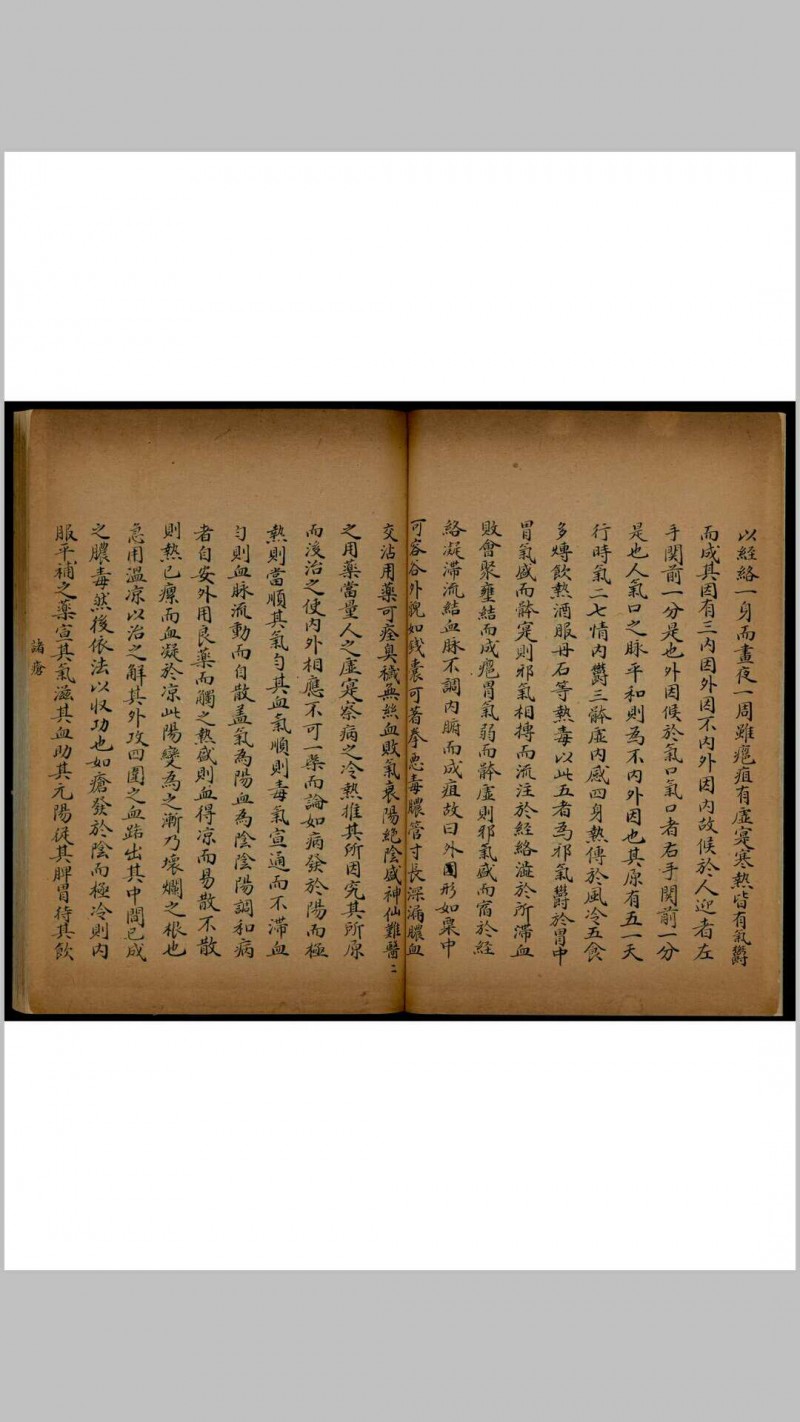 以經絡一身而晝夜一周雖瘡疽有虛寔寒熱皆有氣欝
而成其因有三內因外因不內外因內故候於人迎者左
手関前一分是也外因候於氣口氣口者右手関前一分
是也人氣口之脉平和則為不內外因也其原有五一天
行時氣二七情內欝三骵虛內感四身熱傳於風冷五食
多煿飲熱酒服丹石等熱毒以此五者為邪氣欝於胃中
胃氣盛而骵寔則邪氣相摶而流注於經絡澁於所滯血
敗會聚壅結而成瘡胃氣弱而骵虛則邪氣盛而畱於經
絡凝滯流結血脉不調內腑而成疽故曰外圍形如粟中
可容谷外貌如錢囊可著拳悪毒膿管寸長深漏膿血
交沾用藥可痊臭穢無絲血敗氣衰陽絕陰盛神仙難醫〻
之用藥當量人之虛寔察病之冷熱推其所因究其所原
而後治之使內外相應不可一槩而論如病發於陽而極
熱則當順其氣勻其血氣順則毒氣宣通而不滯血
勻則血脉流動而自散盖氣為陽血為陰陰陽調和病
者自安外用良藥而觸之熱盛則血得凉而易散不散
則熱已瘭而血凝於凉此陽變為之漸乃壊爛之根也
急用溫凉以治之解其外攻四圍之血踣出其中間已成
之膿毒然後依法以収功也如瘡發於陰而極冷則內
服平補之藥宣其氣滋其血助其元陽從其脾胃待其飲
諸瘡